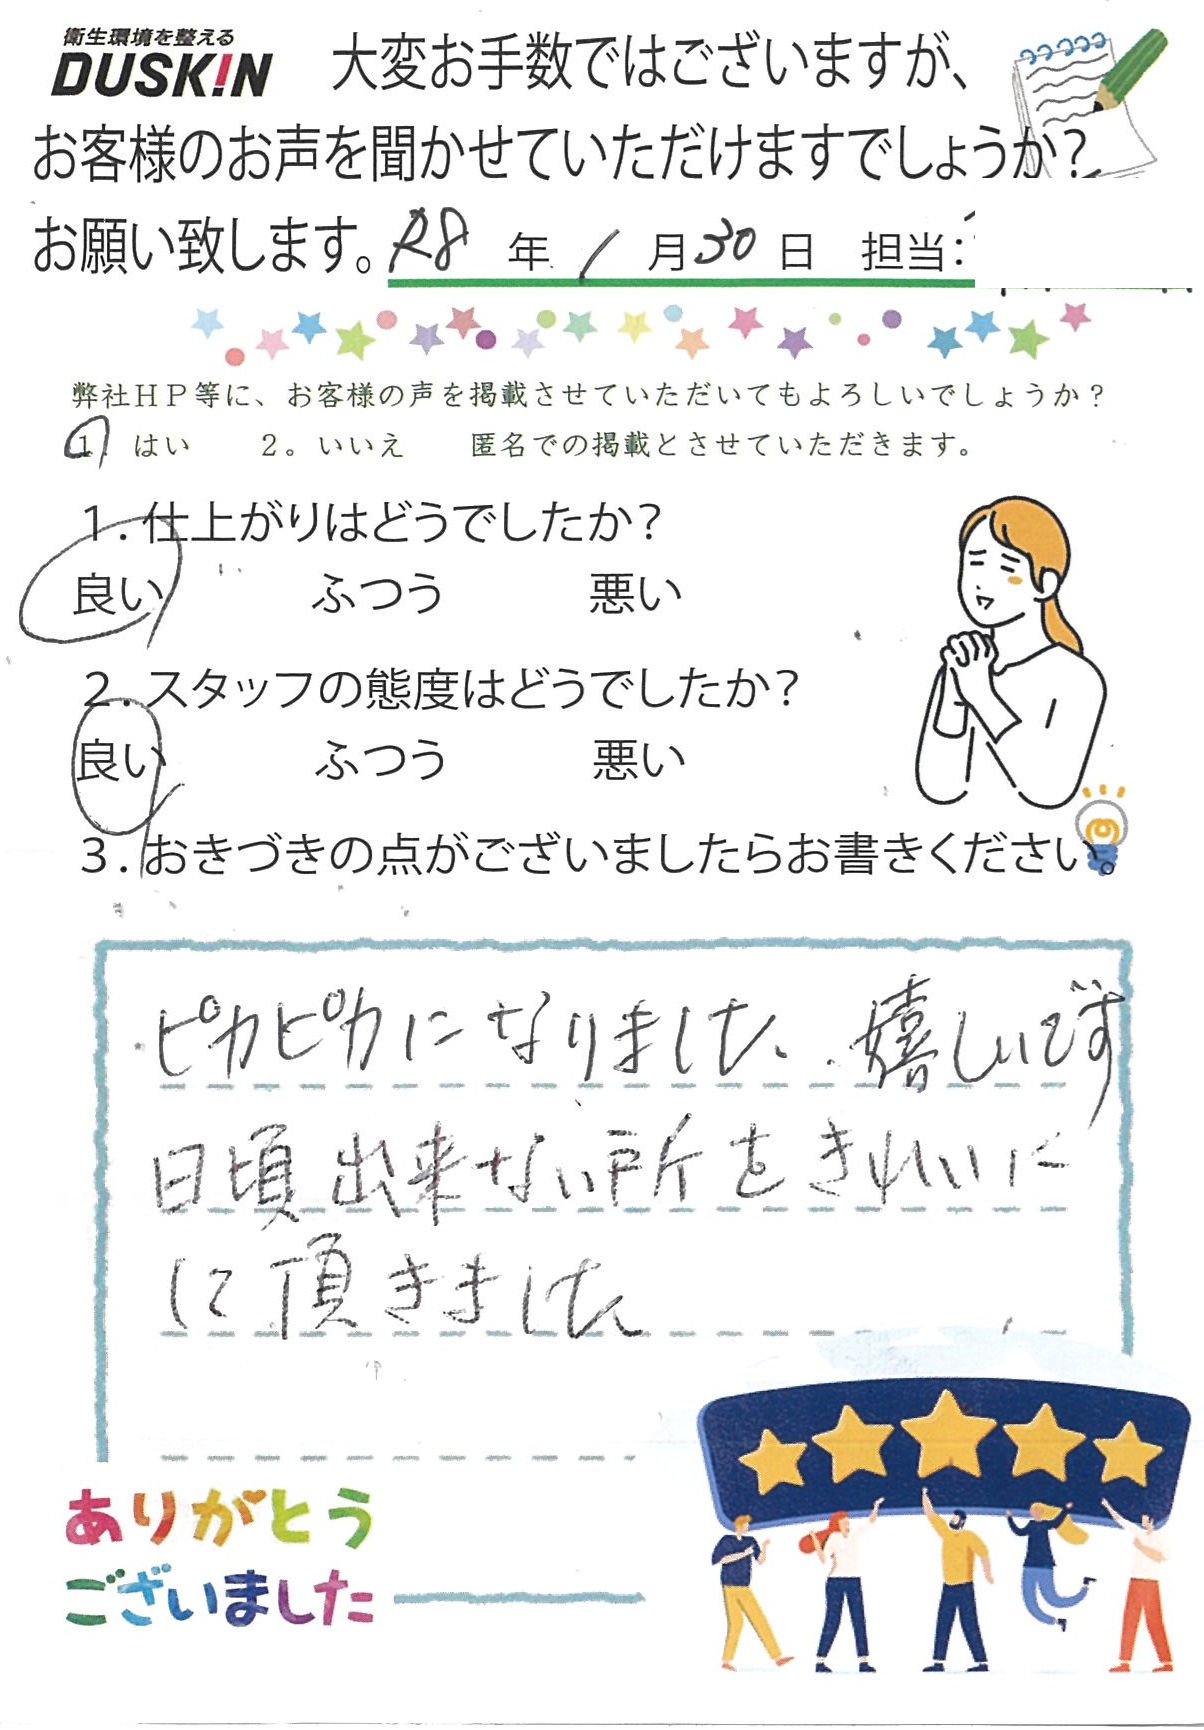 衛生環境を整える
DUSKIN
大変お手数ではございますが、
お客様のお声を聞かせていただけますでしょうか?
お願い致します。R8 年 1 月30日 担当:
弊社HP等に、お客様の声を掲載させていただいてもよろしいでしょうか?
1. はい 2。いいえ 匿名での掲載とさせていただきます。
1. 仕上がりはどうでしたか?
良い ふつう 悪い
2. スタッフの態度はどうでしたか?
良い ふつう 悪い
3. おきづきの点がございましたらお書きください。
ピカピカになりました、嬉しいです
日頃出来ない所をきれいに
して頂きました
ありがとう
ございました